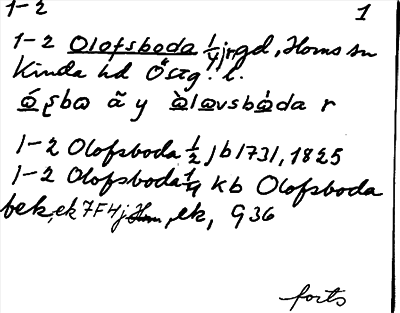 1-2 1
1-2 Olofsboda 1/4 jrgd, Horns sn
Kinda hd Östg. l.
ó̱ʂbo ã y ò̱lo̱vsbò̱da r
1-2 Olofsboda 1/2 jb 1731, 1825
1-2 Olofsboda 1/4 kb Olofsboda
bek, ek 7F4j, ek, G36
forts